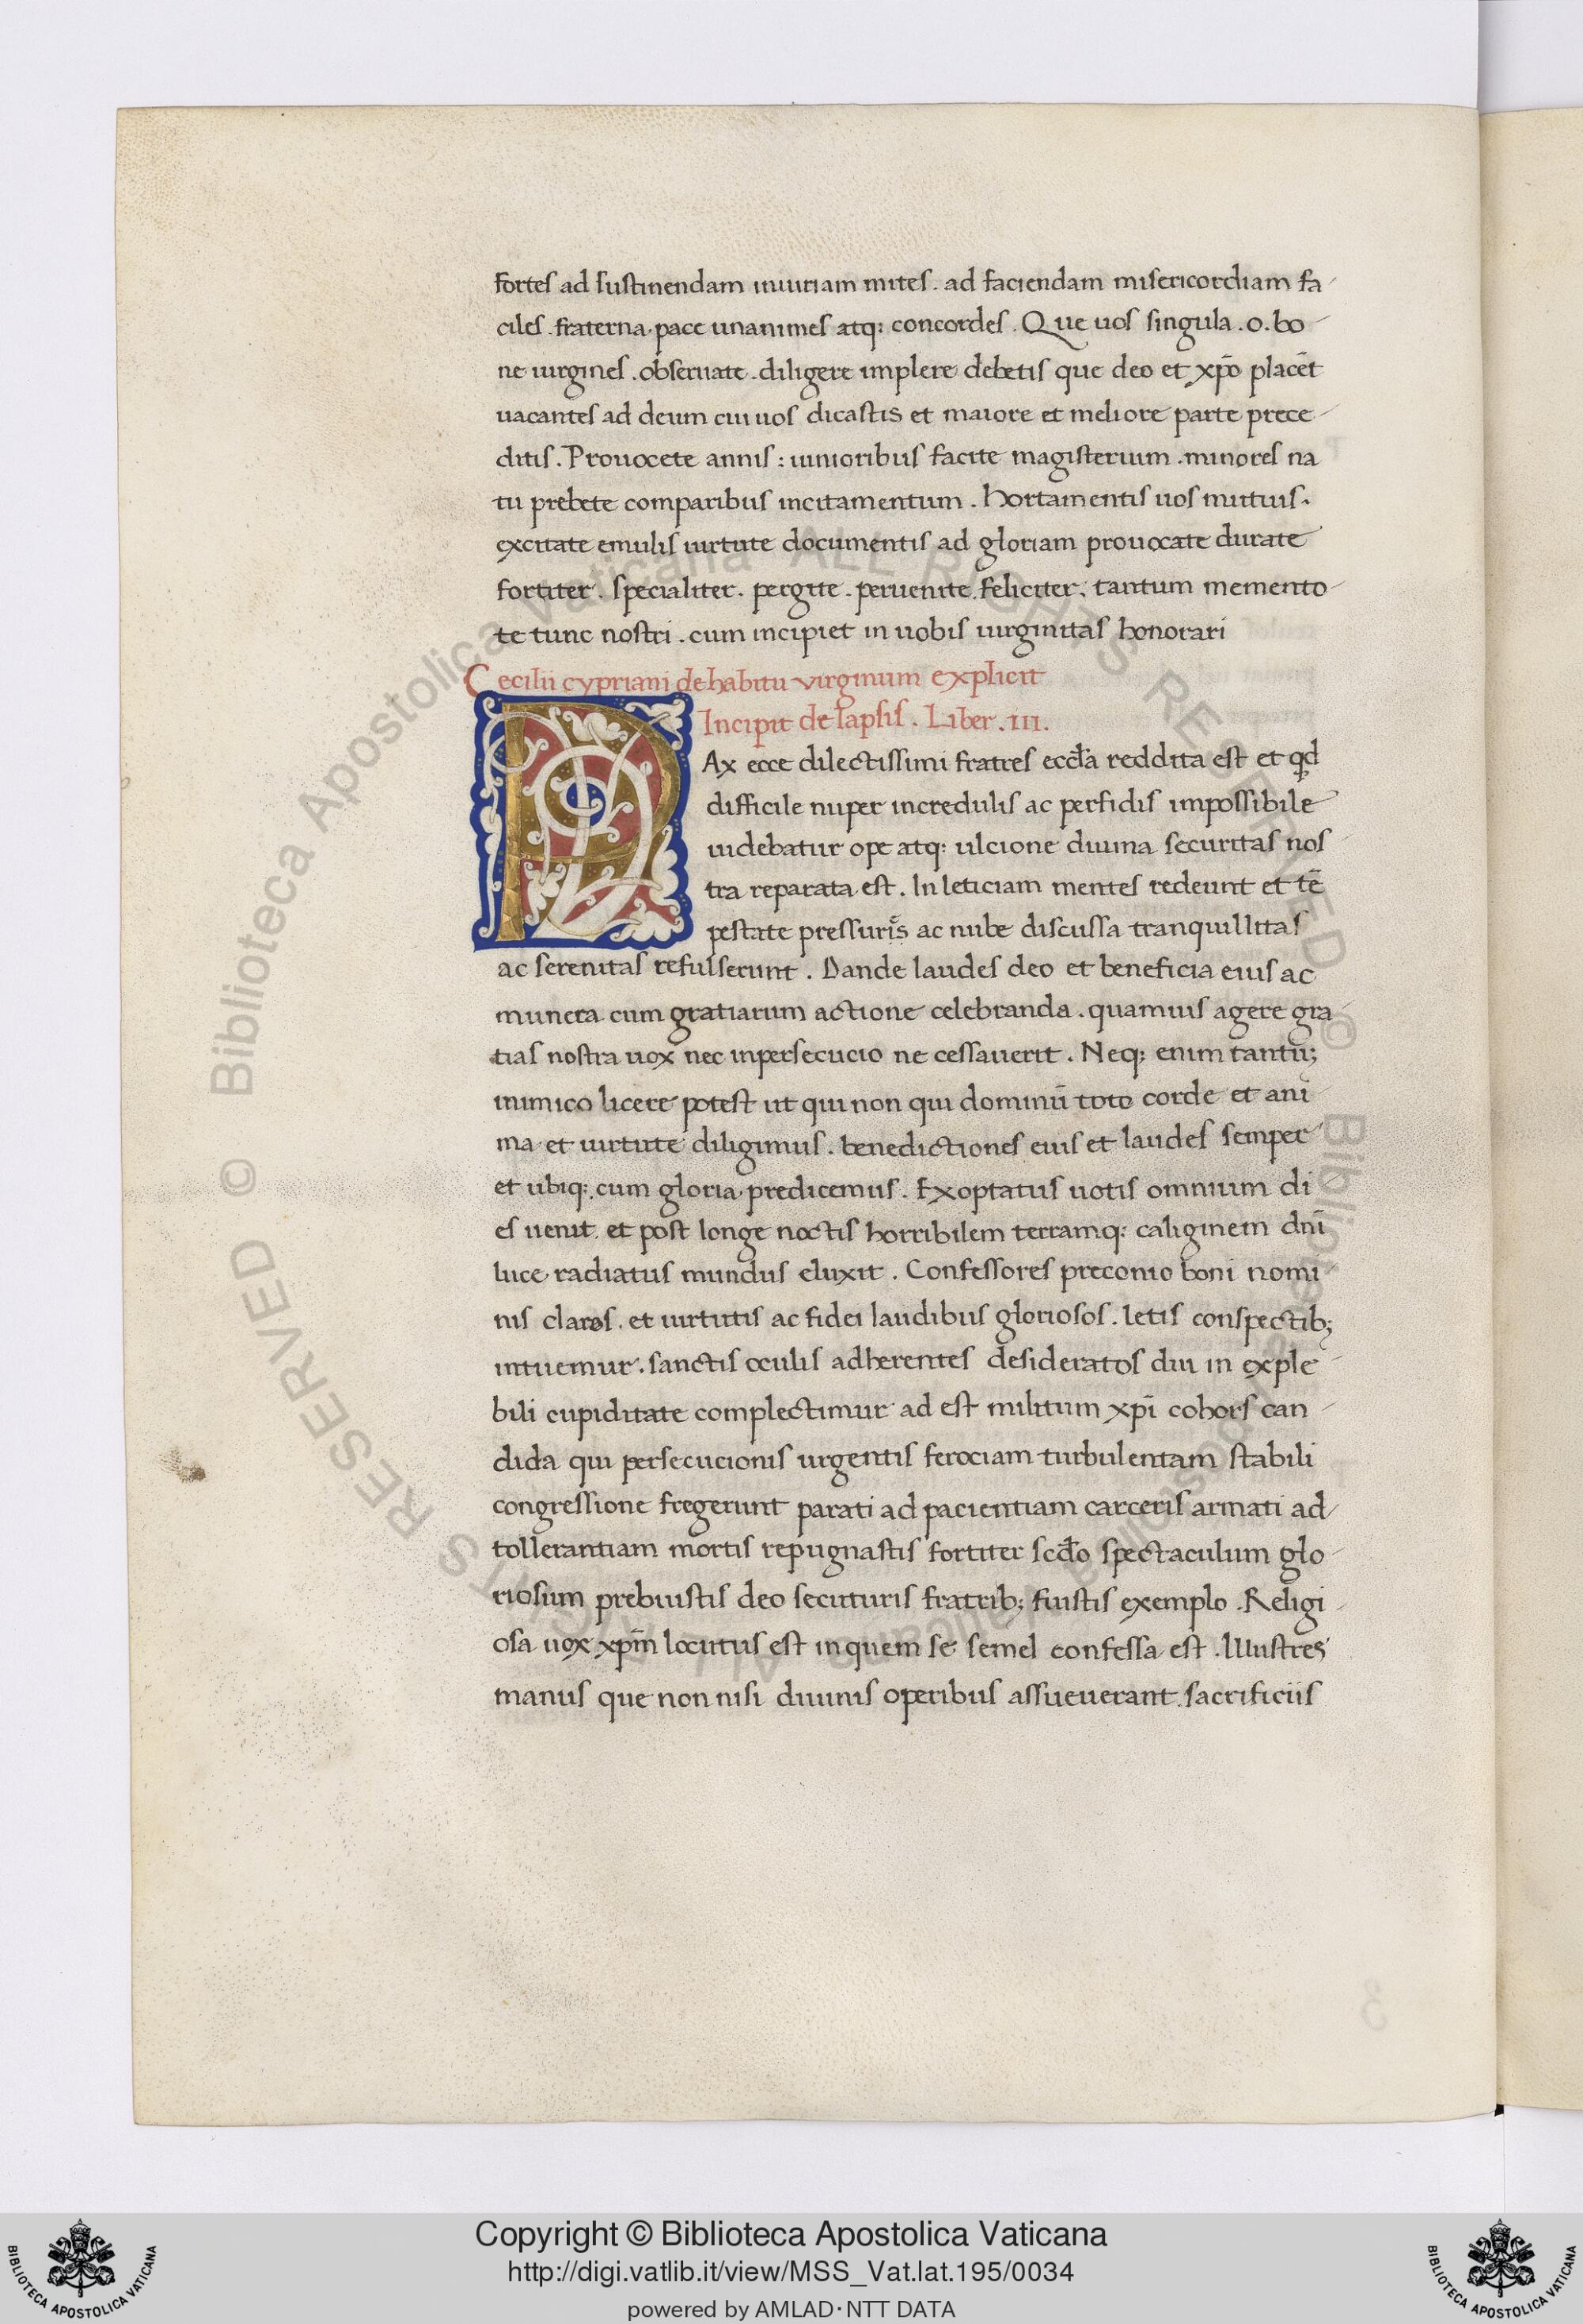 fortes ad sustinendam iniuriam mites. ad faciendam misericordiam fa-
ciles. fraterna pace unanimes atq: concordes. Que uos singula. o. bo-
ne uirgines. obseruate. diligere implere debetis que deo et xp̄o placēt
uacantes ad deum cui uos dicastis et maiore et meliore parte prece-
ditis. Prouocete annis: iunioribus facite magisterium. minores na
tu prebete comparibus incitamentum. Hortamentis uos mutuis.
excitate emulis uirtute documentis ad gloriam prouocate durate
fortiter. specialiter. pergite. peruenite. feliciter. tantum memento-
te tunc nostri. cum incipiet in uobis uirginitas honorari
Cecilii cypriani de habitu virginum explicit
Incipit de lapsis. Liber. III.
PAx ecce dilectissimi fratres eccl̄a reddita est et qd
difficile nuper incredulis ac perfidis impossibile
uidebatur ope atq: ulcione diuina securitas nos-
tra reparata est. In leticiam mentes redeunt et tē
pestate pressuris ac nube discussa tranquillitas
ac serenitas refulserunt. Dande laudes deo et beneficia eius ac
munera cum gratiarum actione celebranda. quamuis agere gra-
tias nostra uox nec inpersecucio ne cessauerit. Neq; enim tantū;
inimico licere potest ut qui non qui dominū toto corde et ani-
ma et uirtute diligimus. benedictiones eius et laudes semper
et ubiq: cum gloria predicemus. Exoptatus uotis omnium di
es uenit. et post longe noctis horribilem terramq: caliginem dn̄i
luce radiatus mundus eluxit. Confessores preconio boni nomi-
nis claros. et uirtutis ac fidei laudibus gloriosos. letis conspectib;
intuemur. sanctis oculis adherentes desideratos diu in exple-
bili cupiditate complectimur ad est militum xp̄i cohors can-
dida qui persecucionis urgentis ferociam turbulentam stabili
congressione fregerunt parati ad pacientiam carceris armati ad
tollerantiam mortis repugnastis fortiter scl̄o spectaculum glo-
riosum prebuistis deo secuturis fratrib; fuistis exemplo. Religi-
osa uox xp̄m locutus est in quem se semel confessa est. Illustres
manus que non nisi diuinis operibus assueuerant. sacrificiis
Copyright © Biblioteca Apostolica Vaticana
http://digi.vatlib.it/view/MSS_Vat.lat.195/0034
powered by AMLAD·NTT DATA
BIBLIOTECA APOSTOLICA VATICANA
BIBLIOTECA APOSTOLICA VATICANA
© Biblioteca Apostolica Vaticana ALL RIGHTS RESERVED
© Biblioteca Apostolica Vaticana ALL RIGHTS RESERVED